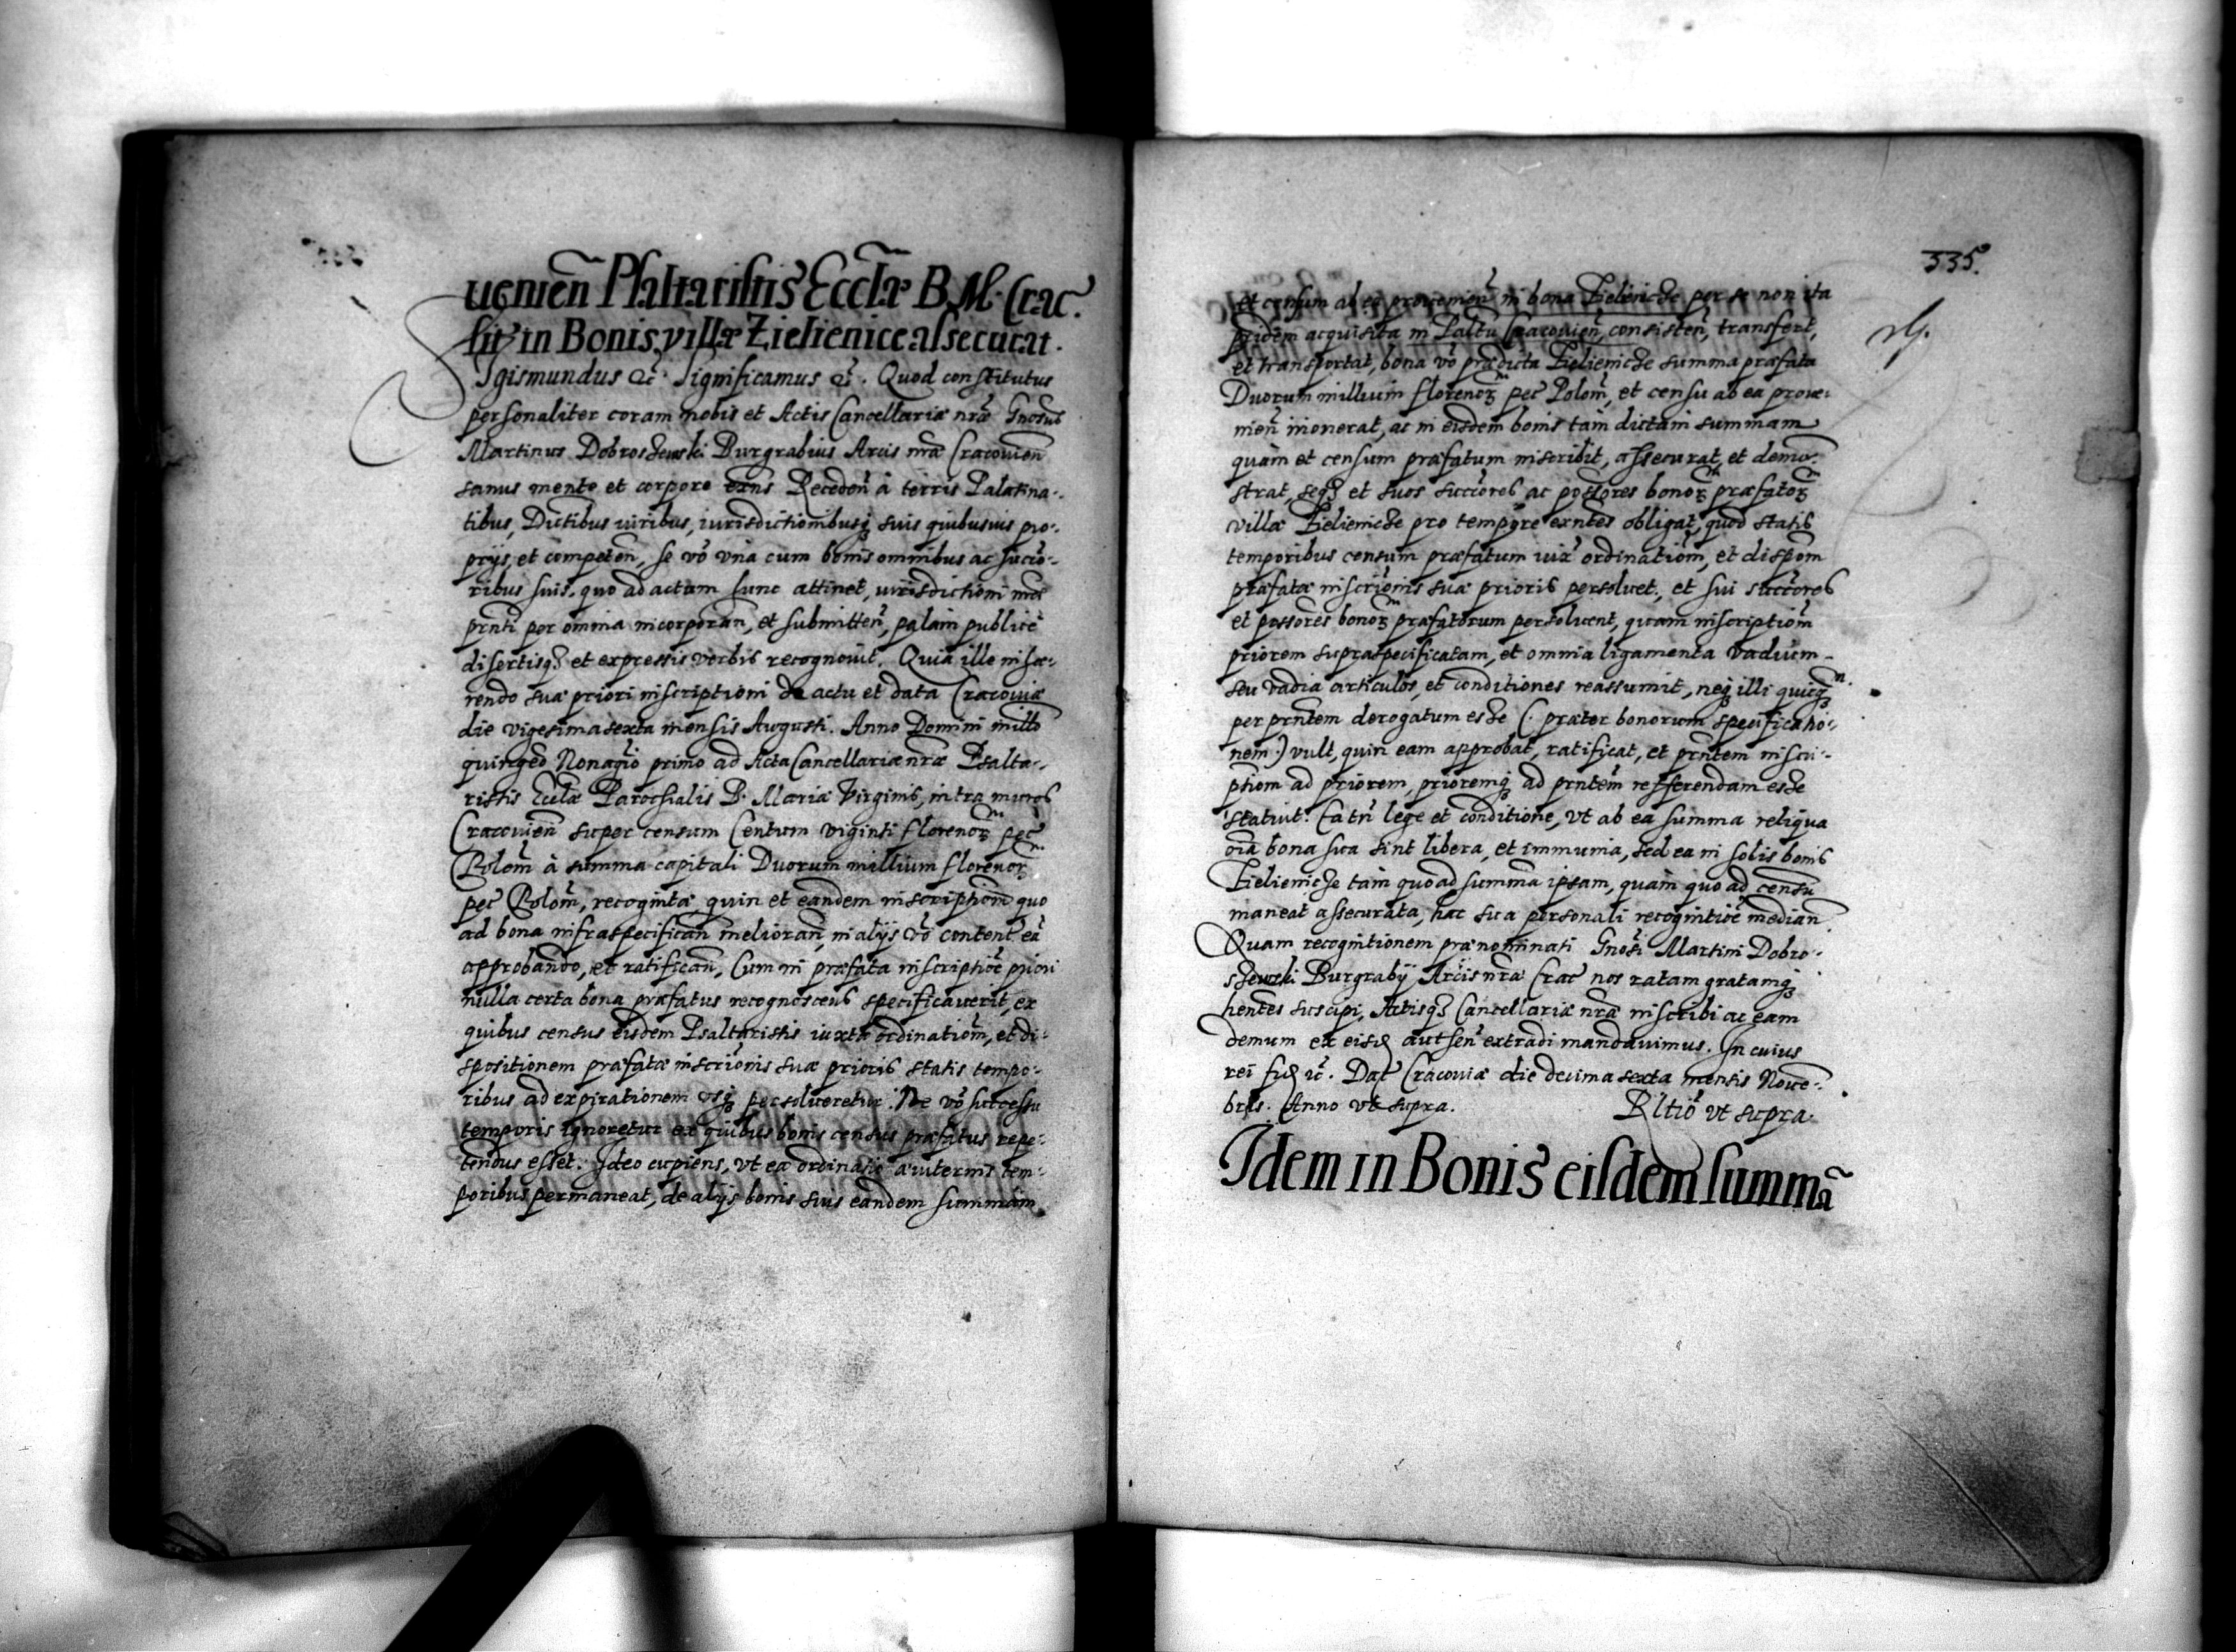 uenien̄ Psaltaristis Eccl̃æ B. M. Crac̃.
sit̃ in Bonis villæ Zielienice assecurat.
Sigismundus &c̃. Significamus &c̃. Quod constitutus
personaliter coram nobis et Actis Cancellariæ nræ̃ Gnosus̃
Martinus Dobroszewski Burgrabius Arcis nræ̃ Cracouien̄
sanus mente et corpore exñs Recedeñ à terris Palatina-
tibus, Dictibus iuribus, iurisdictionibusq̨ suis quibusuis pro-
prijs, et competeñ, se võ vña cum bonis omnibus ac succõ-
ribus suis, quo ad actum hunc attinet, iurisdictioni nr̃æ
prñti per omnia incorporan̄, et submitten̄, palam publicè
disertisq̨ et expressis verbis recognouit. Quia ille inhæ-
rendo suæ priori inscriptioni de actu et data Cracouiæ
die vigesima sexta mensis Augusti. Anno Domini millo
quingeõ Nonagiõ primo ad Acta Cancellariæ nræ̃ Psalta-
ristis Eccl̃æ Parochialis B. Mariæ Virginis, intra muros
Cracouien̄ super censum Centum viginti florenoꝝ pec̃
Polom̄ à summa capitali Duorum millium florenoꝝ
pec̃ Polom̄, recognita, quin et eandem inscriptiom̄ quo
ad bona infraspecifican̄ melioran̄, in alijs võ content̃ eã
approbando, et ratifican̄, Cum in præfata inscriptiõe priori
nulla certa bona præfatus recognoscens specificauerit, ex
quibus census eisdem Psaltaristis iuxta ordinatiom̄, et di-
spositionem præfatæ inscriõnis suæ prioris statis tempo-
ribus ad expirationem vsq̨ persolueretur. Ne võ successu
temporis ignoretur ex quibus bonis census præfatus repe-
tendus esset. Ideo cupiens, vt ea ordinatio æuiternis tem-
poribus permaneat, de alijs bonis suis eandem summam
335.
et censum ab ea prouenien̄ in bona Zielienicze per se non ita
pridem acquisita in Palt̃u Cracouien̄, consisten̄, transfert,
et transportat, bona võ prædicta Zielienicze summa præfata
Duorum millium florenoꝝ pec̃ Polom̄, et censu ab ea proue-
nien̄ inonerat, ac in eisdem bonis tàm dictam summam
quàm et censum præfatum inscribit, assecurat, et demon-
strat, seq̨ et suos succõres ac possõres bonoꝝ præfatoꝝ
villæ Zielienicze pro tempore exñtes obligat, quod statis
temporibus censum præfatum iux̃ ordinatiom̄, et dispom̄
præfatæ inscriõnis suæ prioris persoluet, et sui succõres
et possõres bonoꝝ præfatorum persoluent, quam inscriptiom̄
priorem supraspecificatam, et omnia ligamenta vadium
seu vadia articulos, et conditiones reassumit, neq̨ illi quicq̨
per prñtem derogatum esse (præter bonorum specificatio-
nem) vult, quin eam approbat, ratificat, et prñtem inscri-
ptiom̄ ad priorem, prioremq̨ ad prñtem refferendam esse
statuit. Ea tñ lege et conditione, vt ab ea summa reliqua
oĩa bona sua sint libera, et immunia, sed ea in solis bonis
Zielienicze tàm quo ad summã ipsam, quàm quo ad censũ
maneat assecurata, hac sua personali recognitiõe median̄.
Quam recognitionem prænominati Gnosi Martini Dobro-
szewski Burgrabij Arcis nræ̃ Crac̃ nos ratam gratamq̨
hentẽs suscipi, Actisq̨ Cancellariæ nræ̃ inscribi ac eam
demum ex eisd̃ autheñ extradi mandauimus. In cuius
rei fid̃ &c̃. Dat̃ Cracouiæ die decima sexta mensis Nouẽ-
bris. Anno vt supra.
Rltiõ vt supra.
Idem in Bonis eisdem summã